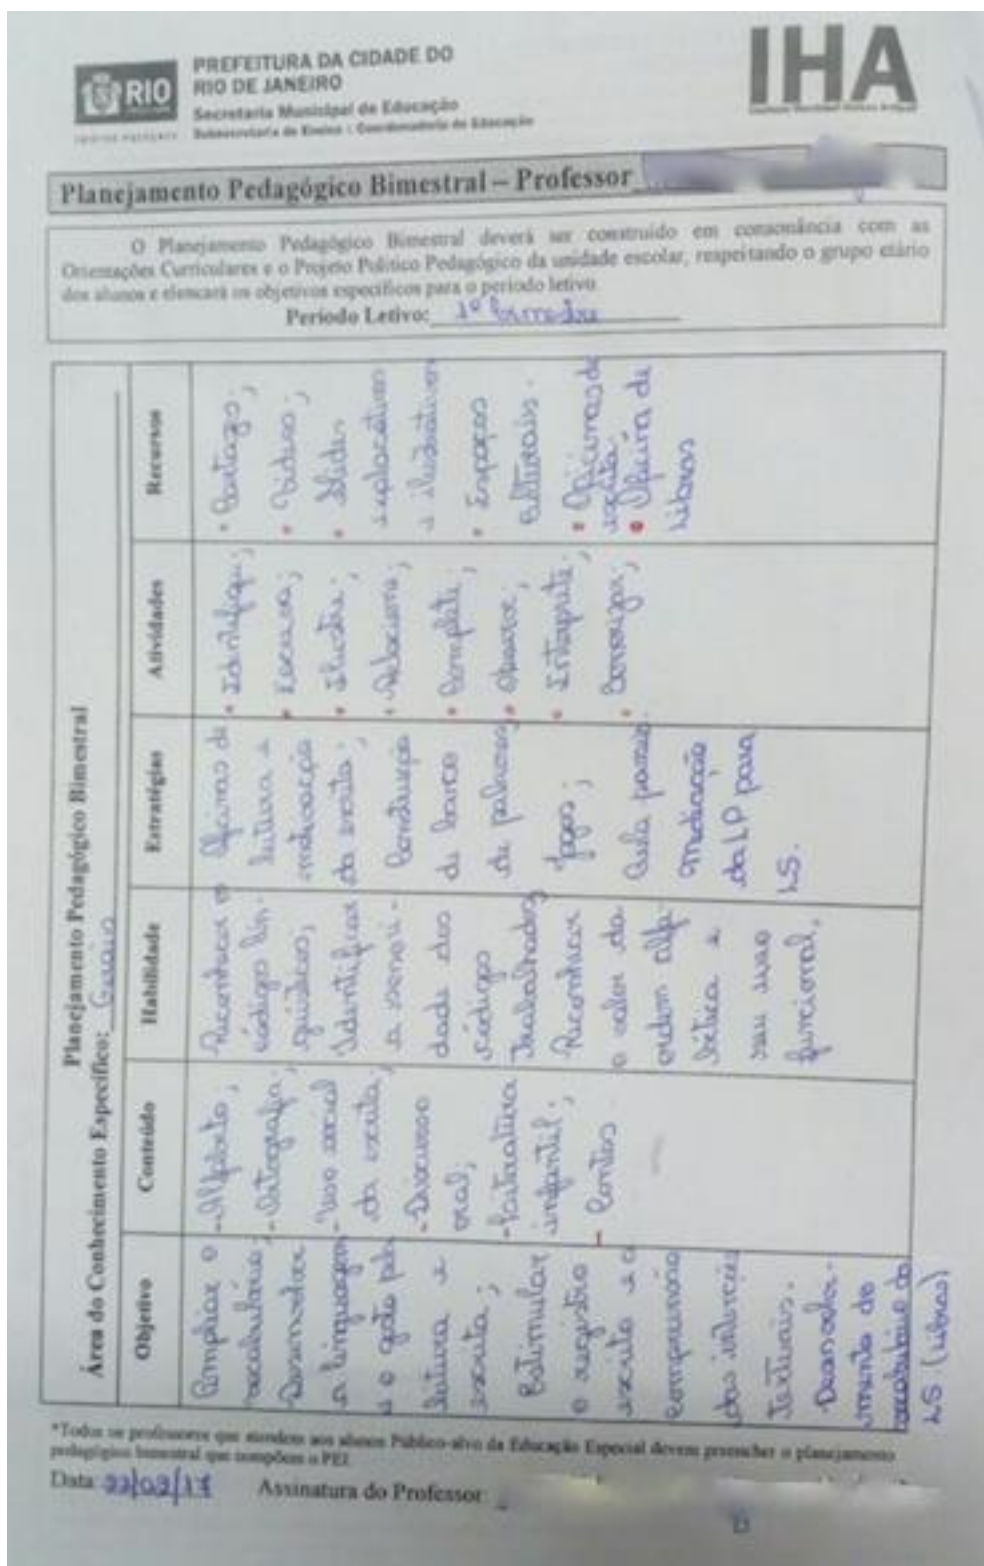 RIO
PREFEITURA DA CIDADE DO
RIO DE JANEIRO
Secretaria Municipal de Educação
Subsecretaria de Ensino - Coordenadoria de Educação
IHA
Planejamento Pedagógico Bimestral – Professor
O Planejamento Pedagógico Bimestral deverá ser construído em consonância com as
Orientações Curriculares e o Projeto Político Pedagógico da unidade escolar, respeitando o grupo etário
dos alunos e elencará os objetivos específicos para o período letivo.
Período Letivo: 1º bimestre
Planejamento Pedagógico Bimestral
Área do Conhecimento Específico: Gerais
Objetivo
Ampliar o
vocabulário;
Desenvolver
a linguagem
e o gosto pela
leitura e
escrita;
Estimular
o registro
escrito e a
compreensão
das
textuais.
Desenvolvi-
mento do
vocabulário da
LS (Libras)
Conteúdo
- Alfabeto;
- Ortografia;
- Uso social
da escrita;
- Discurso
oral;
- Literatura
infantil;
- Contos
Habilidade
Reconhecer o
código lin-
guístico;
Identificar
a
dade dos
códigos
trabalhados
Reconhecer
o valor da
ordem alfa-
bética e
seu uso
funcional.
Estratégias
Oficinas de
leitura e
motivação
da escrita;
Construção
de banco
de palavras;
Jogos;
Aula passeio
Mediação
da LP para
LS.
Atividades
• Identifique;
• Escreva;
• Ilustre;
• Relacione;
• Complete;
• Observe;
• Interprete;
•
Recursos
• Cartazes;
• Vídeos;
• Slides
explicativos
e ilustrativos
• Espaços
culturais.
• Oficinas de
escrita
• Oficina de
Libras
*Todos os professores que atendem aos alunos Público-alvo da Educação Especial devem preencher o planejamento
pedagógico bimestral que compõem o PEI.
Data: 22/02/17 Assinatura do Professor: